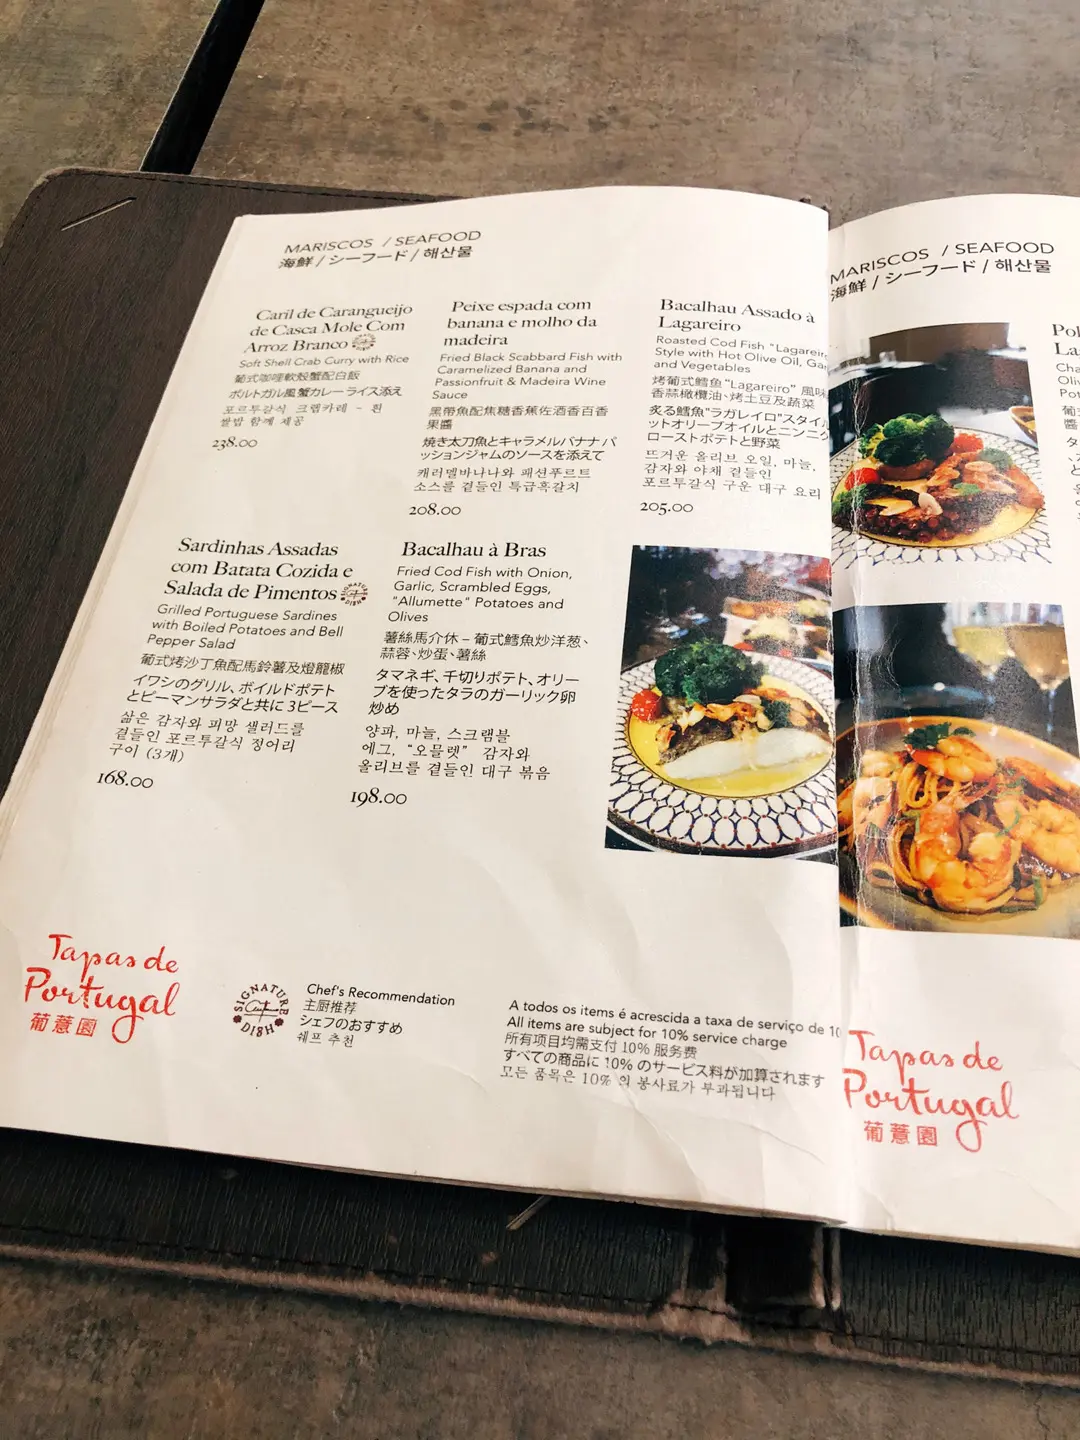 MARISCOS / SEAFOOD
海鮮 / シーフード / 해산물
Caril de Carangueijo
de Casca Mole Com
Arroz Branco
Soft Shell Crab Curry with Rice
葡式咖哇軟殼蟹配白飯
ポルトガル風蟹カレーライス添え
포르투갈식 크랩카레 - 흰
쌀밥 함께 제공
238.00
Peixe espada com
banana e molho da
madeira
Fried Black Scabbard Fish with
Caramelized Banana and
Passionfruit & Madeira Wine
Sauce
黑帶魚配焦糖香蕉佐酒香百香
果醬
焼き太刀魚とキャラメルバナナ パ
ッションジャムのソースを添えて
캐러멜바나나와 패션푸르트
소스를 곁들인 특급흑갈치
208.00
Bacalhau Assado à
Lagareiro
Roasted Cod Fish "Lagareiro
Style with Hot Olive Oil, Gar
and Vegetables
烤葡式鱈鱼"Lagareiro" 風味
香蒜橄欖油、烤土豆及蔬菜
炙る鱈魚"ラガレイロ"スタイル
ットオリーブオイルとニンニク
ローストポテトと野菜
뜨거운 올리브 오일, 마늘,
감자와 야채 곁들인
포르투갈식 구운 대구 요리
205.00
Sardinhas Assadas
com Batata Cozida e
Salada de Pimentos
SIGNATURE DISH
Grilled Portuguese Sardines
with Boiled Potatoes and Bell
Pepper Salad
葡式烤沙丁魚配馬鈴薯及燈籠椒
イワシのグリル、ボイルドポテト
とピーマンサラダと共に 3ピース
삶은 감자와 피망 샐러드를
곁들인 포르투갈식 정어리
구이 (3개)
168.00
Bacalhau à Bras
Fried Cod Fish with Onion,
Garlic, Scrambled Eggs,
"Allumette" Potatoes and
Olives
薯絲馬介休 – 葡式鱈魚炒洋葱、
蒜蓉、炒蛋、薯絲
タマネギ、千切りポテト、オリー
ブを使ったタラのガーリック卵
炒め
양파, 마늘, 스크램블
에그, "오믈렛" 감자와
올리브를 곁들인 대구 볶음
198.00
Tapas de
Portugal
葡薏園
SIGNATURE
DISH
Chef's Recommendation
主厨推荐
シェフのおすすめ
쉐프 추천
A todos os items é acrescida a taxa de serviço de 10
All items are subject for 10% service charge
所有项目均需支付 10% 服务费
すべての商品に 10% のサービス料が加算されます
모든 품목은 10% 의 봉사료가 부과됩니다
MARISCOS / SEAFOOD
海鮮 / シーフード / 해산물
Pol
La
Cha
Oliv
Pot
葡
醬
Tapas de
Portugal
葡薏園